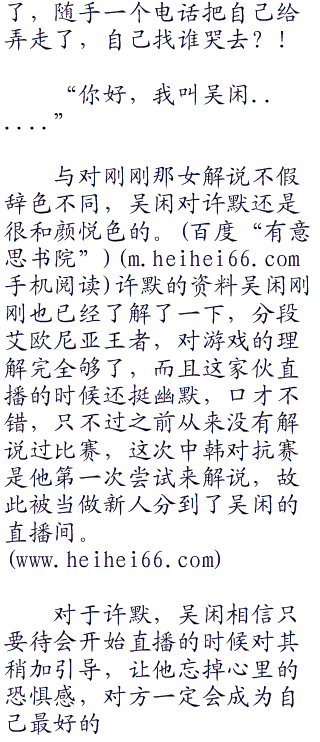 了，随手一个电话把自己给
弄走了，自己找谁哭去？！
“你好，我叫吴闲..
....”
与对刚刚那女解说不假
辞色不同，吴闲对许默还是
很和颜悦色的。(百度“有意
思书院”)(m.heihei66.com
手机阅读)许默的资料吴闲刚
刚也已经了解了一下，分段
艾欧尼亚王者，对游戏的理
解完全够了，而且这家伙直
播的时候还挺幽默，口才不
错，只不过之前从来没有解
说过比赛，这次中韩对抗赛
是他第一次尝试来解说，故
此被当做新人分到了吴闲的
直播间。
(www.heihei66.com)
对于许默，吴闲相信只
要待会开始直播的时候对其
稍加引导，让他忘掉心里的
恐惧感，对方一定会成为自
己最好的